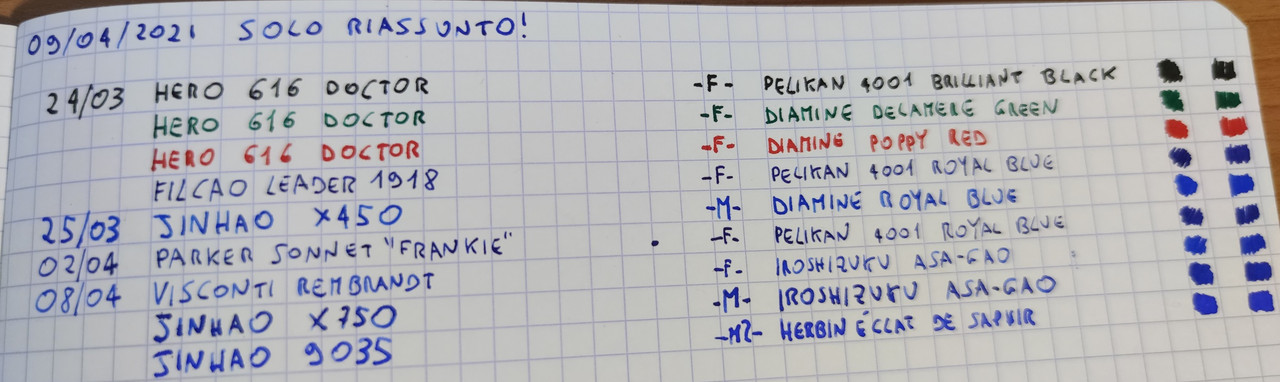 09/04/2021 SOLO RIASSUNTO!
24/03 HERO 616 DOCTOR -F- PELIKAN 4001 BRILLIANT BLACK
HERO 616 DOCTOR -F- DIAMINE DELAMERE GREEN
HERO 616 DOCTOR -F- DIAMINE POPPY RED
FILCAO LEADER 1918 -F- PELIKAN 4001 ROYAL BLUE
25/03 JINHAO X450 -M- DIAMINE ROYAL BLUE
02/04 PARKER SONNET "FRANKIE" -F- PELIKAN 4001 ROYAL BLUE
08/04 VISCONTI REMBRANDT -F- IROSHIZUKU ASA-GAO
JINHAO X750 -M- IROSHIZUKU ASA-GAO
JINHAO 9035 -M?- HERBIN ÉCLAT DE SAPHIR